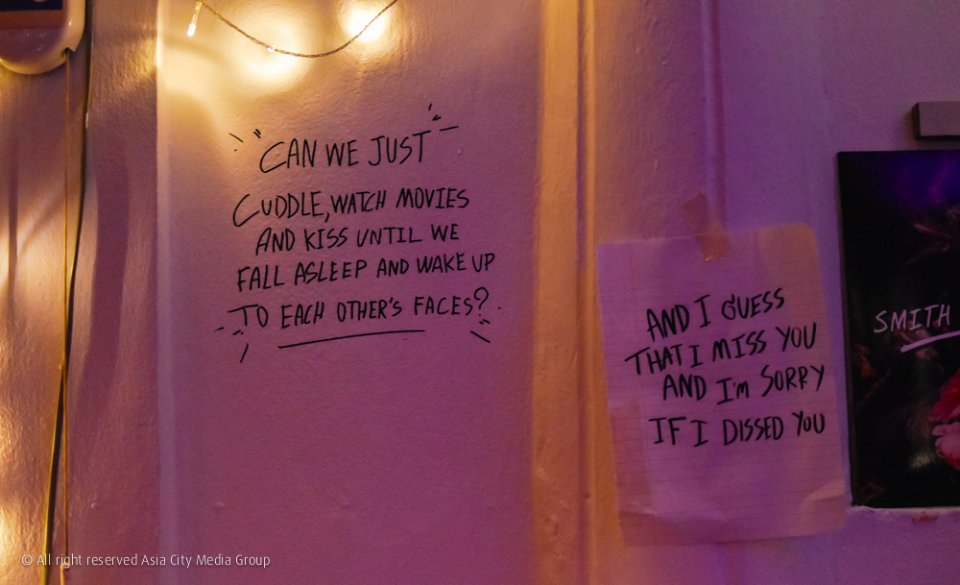 "CAN WE JUST
CUDDLE, WATCH MOVIES
AND KISS UNTIL WE
FALL ASLEEP AND WAKE UP
TO EACH OTHER'S FACES?
AND I GUESS
THAT I MISS YOU
AND I'm SORRY
IF I DISSED YOU
SMITH
© All right reserved Asia City Media Group